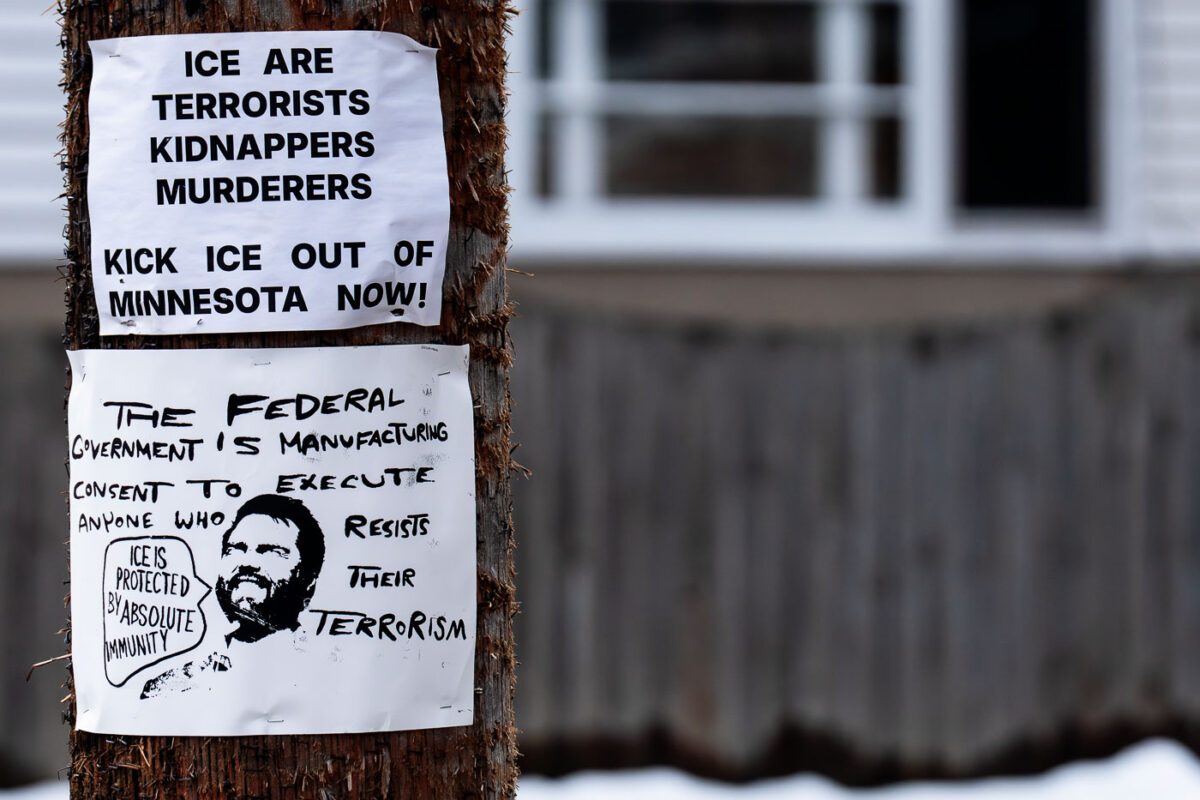 ICE ARE
TERRORISTS
KIDNAPPERS
MURDERERS
KICK ICE OUT OF
MINNESOTA NOW!
THE FEDERAL
GOVERNMENT IS MANUFACTURING
CONSENT TO EXECUTE
ANYONE WHO RESISTS
THEIR
TERRORISM
ICE IS
PROTECTED
BY ABSOLUTE
IMMUNITY